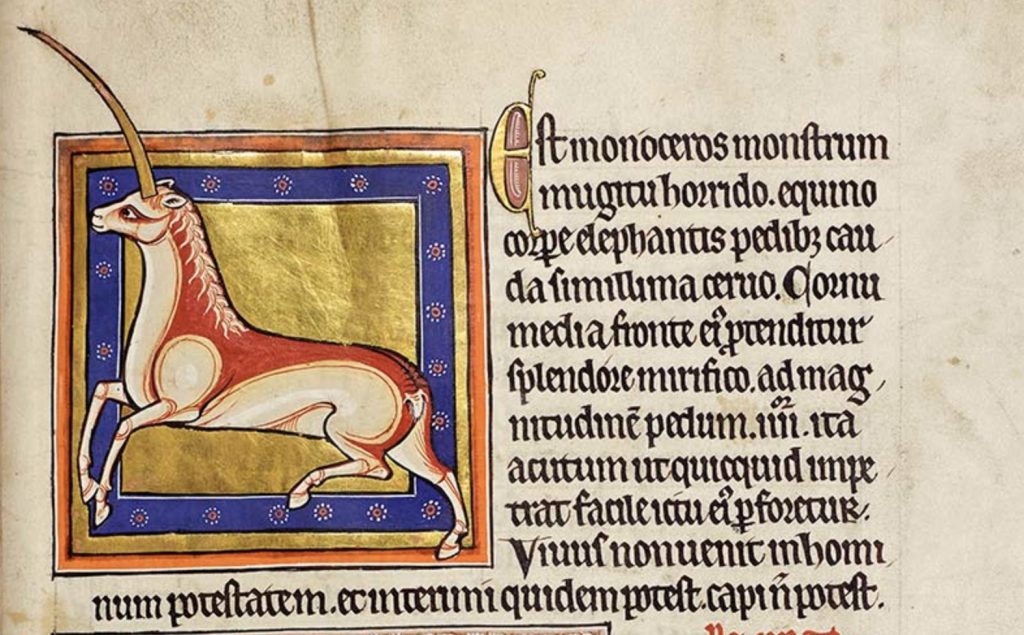 Est monoceros monstrum
mugitu horrido. equino
corꝑe elephantis pedibꝫ cau
da simillima ceruo. Cornu
media fronte eiꝰ ꝓtenditur
splendore mirifico. ad mag
nitudinē pedum .iiiiᵒʳ. ita
acutum ut quicquid impe
trat facile ictu eiꝰ ꝑforetur.
Viuus non uenit in homi
num potestatem. et interimi quidem potest. capi n̄ potest.